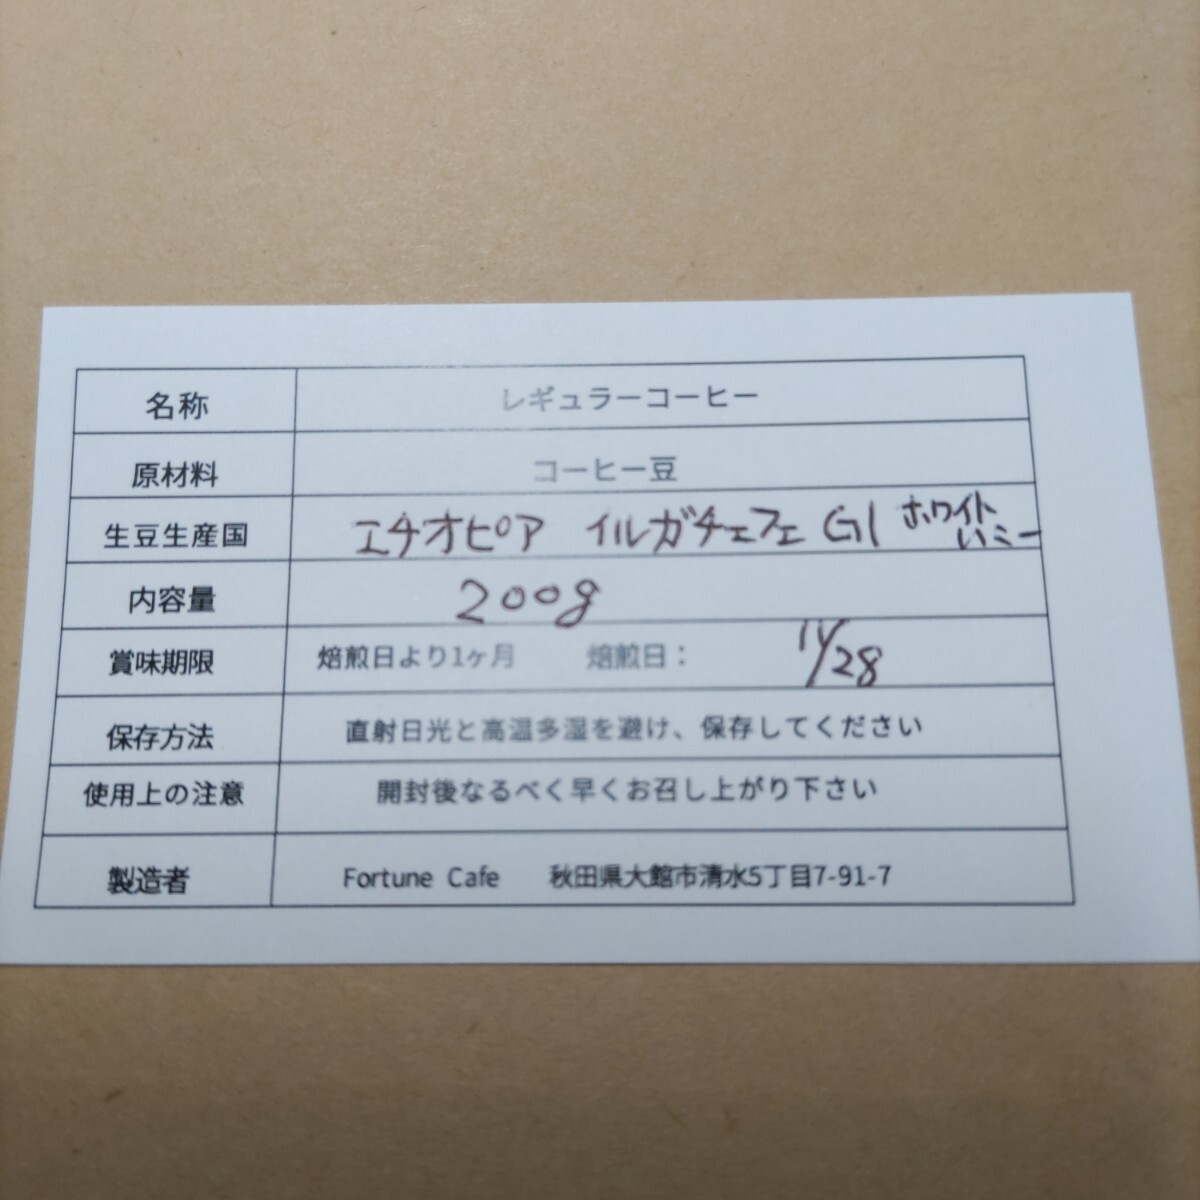 名称 レギュラーコーヒー
原材料 コーヒー豆
生豆生産国 エチオピア イルガチェフェ G1 ホワイト
ハニー
内容量 200g
賞味期限 焙煎日より1ヶ月 焙煎日： 11/28
保存方法 直射日光と高温多湿を避け、保存してください
使用上の注意 開封後なるべく早くお召し上がり下さい
製造者 Fortune Cafe 秋田県大館市清水5丁目7-91-7